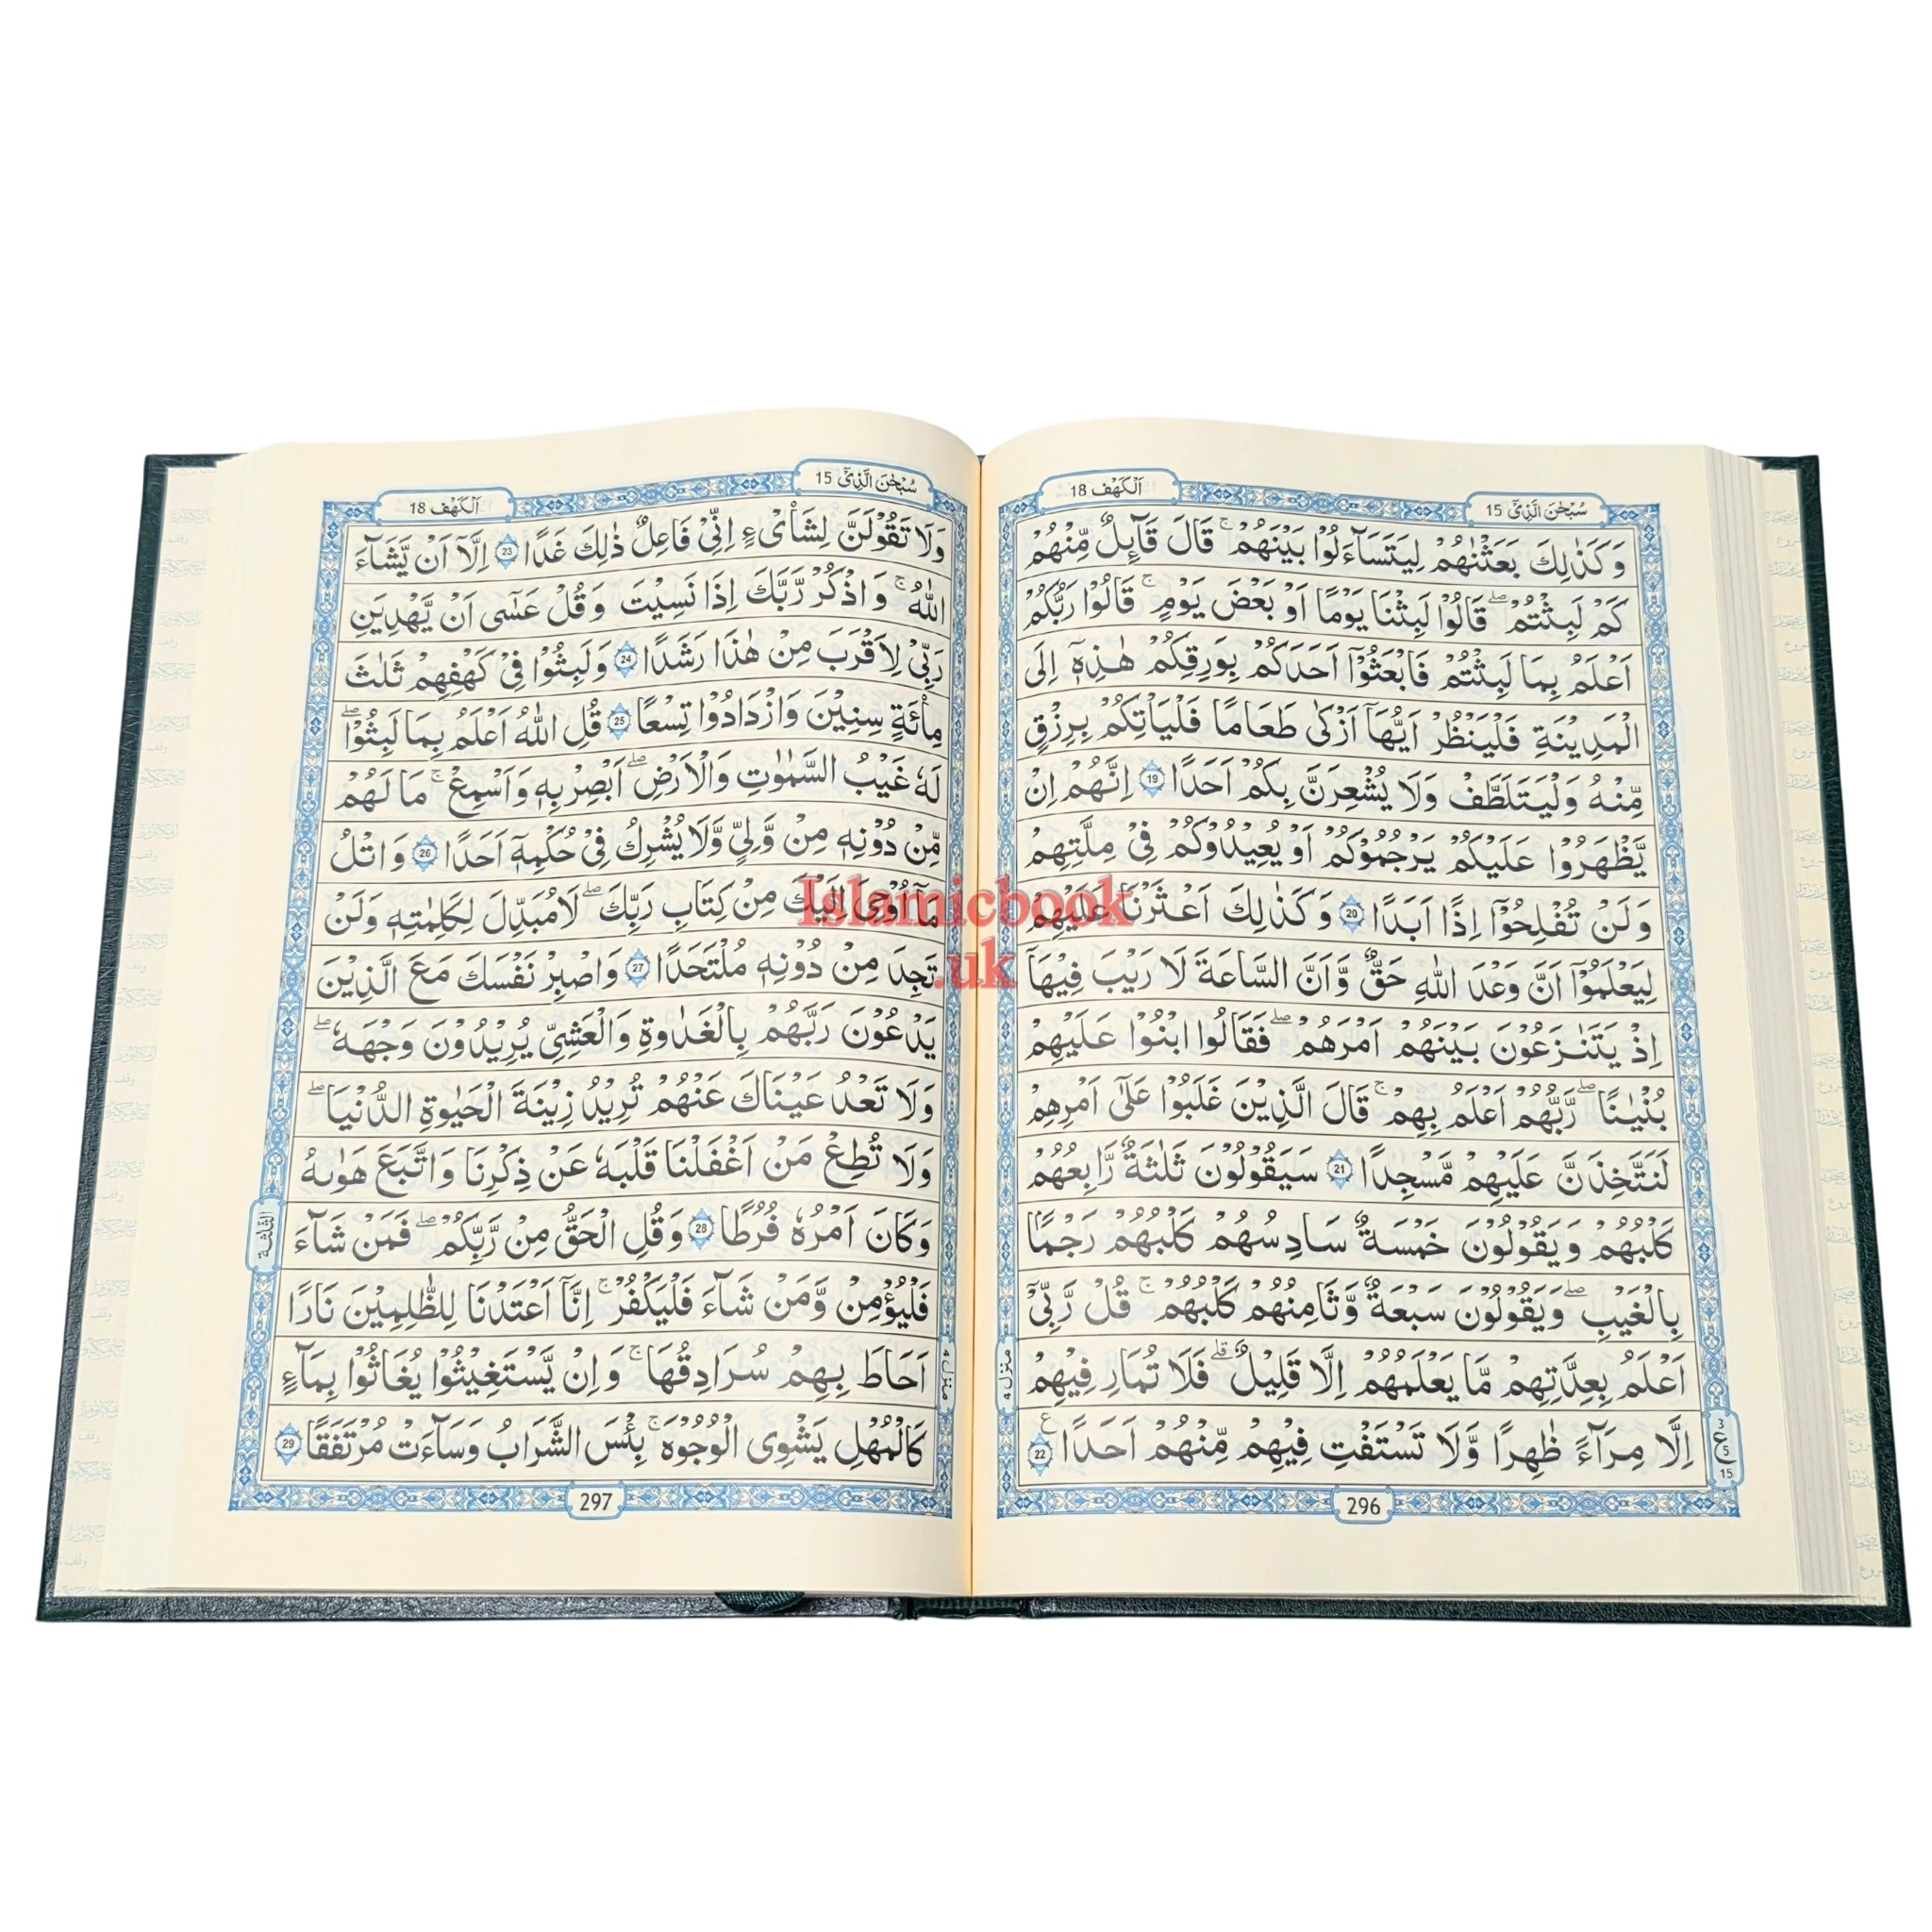 اَلْكَهْف 18
سُبْحٰنَ الَّذِیْٓ 15
وَكَذٰلِكَ بَعَثْنٰهُمْ لِیَتَسَآءَلُوْا بَیْنَهُمْ ۚ قَالَ قَآىِٕلٌ مِّنْهُمْ
كَمْ لَبِثْتُمْ ۖ قَالُوْا لَبِثْنَا یَوْمًا اَوْ بَعْضَ یَوْمٍ ۚ قَالُوْا رَبُّكُمْ
اَعْلَمُ بِمَا لَبِثْتُمْ فَابْعَثُوْۤا اَحَدَكُمْ بِوَرِقِكُمْ هٰذِهٖۤ اِلَی
الْمَدِیْنَةِ فَلْیَنْظُرْ اَیُّهَاۤ اَزْكٰی طَعَامًا فَلْیَاْتِكُمْ بِرِزْقٍ
مِّنْهُ وَلْیَتَلَطَّفْ وَلَا یُشْعِرَنَّ بِكُمْ اَحَدًا 19 اِنَّهُمْ اِنْ
یَّظْهَرُوْا عَلَیْكُمْ یَرْجُمُوْكُمْ اَوْ یُعِیْدُوْكُمْ فِیْ مِلَّتِهِمْ
وَلَنْ تُفْلِحُوْۤا اِذًا اَبَدًا 20 وَكَذٰلِكَ اَعْثَرْنَا عَلَیْهِمْ
لِیَعْلَمُوْۤا اَنَّ وَعْدَ اللّٰهِ حَقٌّ وَّاَنَّ السَّاعَةَ لَا رَیْبَ فِیْهَا
اِذْ یَتَنَازَعُوْنَ بَیْنَهُمْ اَمْرَهُمْ ۖ فَقَالُوا ابْنُوْا عَلَیْهِمْ
بُنْیَانًا ۖ رَّبُّهُمْ اَعْلَمُ بِهِمْ ۚ قَالَ الَّذِیْنَ غَلَبُوْا عَلٰۤی اَمْرِهِمْ
لَنَتَّخِذَنَّ عَلَیْهِمْ مَّسْجِدًا 21 سَیَقُوْلُوْنَ ثَلٰثَةٌ رَّابِعُهُمْ
كَلْبُهُمْ وَیَقُوْلُوْنَ خَمْسَةٌ سَادِسُهُمْ كَلْبُهُمْ رَجْمًۢا
بِالْغَیْبِ ۖ وَیَقُوْلُوْنَ سَبْعَةٌ وَّثَامِنُهُمْ كَلْبُهُمْ ۚ قُلْ رَّبِّیْۤ
اَعْلَمُ بِعِدَّتِهِمْ مَّا یَعْلَمُهُمْ اِلَّا قَلِیْلٌ ۗ فَلَا تُمَارِ فِیْهِمْ
اِلَّا مِرَآءً ظَاهِرًا وَّلَا تَسْتَفْتِ فِیْهِمْ مِّنْهُمْ اَحَدًا 22
منزل ٤
3
ع
5
15
296
سُبْحٰنَ الَّذِیْٓ 15
اَلْكَهْف 18
وَلَا تَقُوْلَنَّ لِشَایْءٍ اِنِّیْ فَاعِلٌ ذٰلِكَ غَدًا 23 اِلَّاۤ اَنْ یَّشَآءَ
اللّٰهُ ۚ وَاذْكُرْ رَّبَّكَ اِذَا نَسِیْتَ وَقُلْ عَسٰۤی اَنْ یَّهْدِیَنِ
رَبِّیْ لِاَقْرَبَ مِنْ هٰذَا رَشَدًا 24 وَلَبِثُوْا فِیْ كَهْفِهِمْ ثَلٰثَ
مِائَةٍ سِنِیْنَ وَازْدَادُوْا تِسْعًا 25 قُلِ اللّٰهُ اَعْلَمُ بِمَا لَبِثُوْا ۖ
لَهٗ غَیْبُ السَّمٰوٰتِ وَالْاَرْضِ ۖ اَبْصِرْ بِهٖ وَاَسْمِعْ ۚ مَا لَهُمْ
مِّنْ دُوْنِهٖ مِنْ وَّلِیٍّ وَّلَا یُشْرِكُ فِیْ حُكْمِهٖۤ اَحَدًا 26 وَاتْلُ
مَاۤ اُوْحِیَ اِلَیْكَ مِنْ كِتَابِ رَبِّكَ ۖ لَا مُبَدِّلَ لِكَلِمٰتِهٖ وَلَنْ
تَجِدَ مِنْ دُوْنِهٖ مُلْتَحَدًا 27 وَاصْبِرْ نَفْسَكَ مَعَ الَّذِیْنَ
یَدْعُوْنَ رَبَّهُمْ بِالْغَدٰوةِ وَالْعَشِیِّ یُرِیْدُوْنَ وَجْهَهٗ ۖ
وَلَا تَعْدُ عَیْنَاكَ عَنْهُمْ تُرِیْدُ زِیْنَةَ الْحَیٰوةِ الدُّنْیَا ۖ
وَلَا تُطِعْ مَنْ اَغْفَلْنَا قَلْبَهٗ عَنْ ذِكْرِنَا وَاتَّبَعَ هَوٰىهُ
وَكَانَ اَمْرُهٗ فُرُطًا 28 وَقُلِ الْحَقُّ مِنْ رَّبِّكُمْ ۖ فَمَنْ شَآءَ
فَلْیُؤْمِنْ وَّمَنْ شَآءَ فَلْیَكْفُرْ ۚ اِنَّاۤ اَعْتَدْنَا لِلظّٰلِمِیْنَ نَارًا
اَحَاطَ بِهِمْ سُرَادِقُهَا ۚ وَاِنْ یَّسْتَغِیْثُوْا یُغَاثُوْا بِمَآءٍ
كَالْمُهْلِ یَشْوِی الْوُجُوْهَ ۚ بِئْسَ الشَّرَابُ وَسَآءَتْ مُرْتَفَقًا 29
منزل ٤
الثلثة
297
Islamicbook
.uk